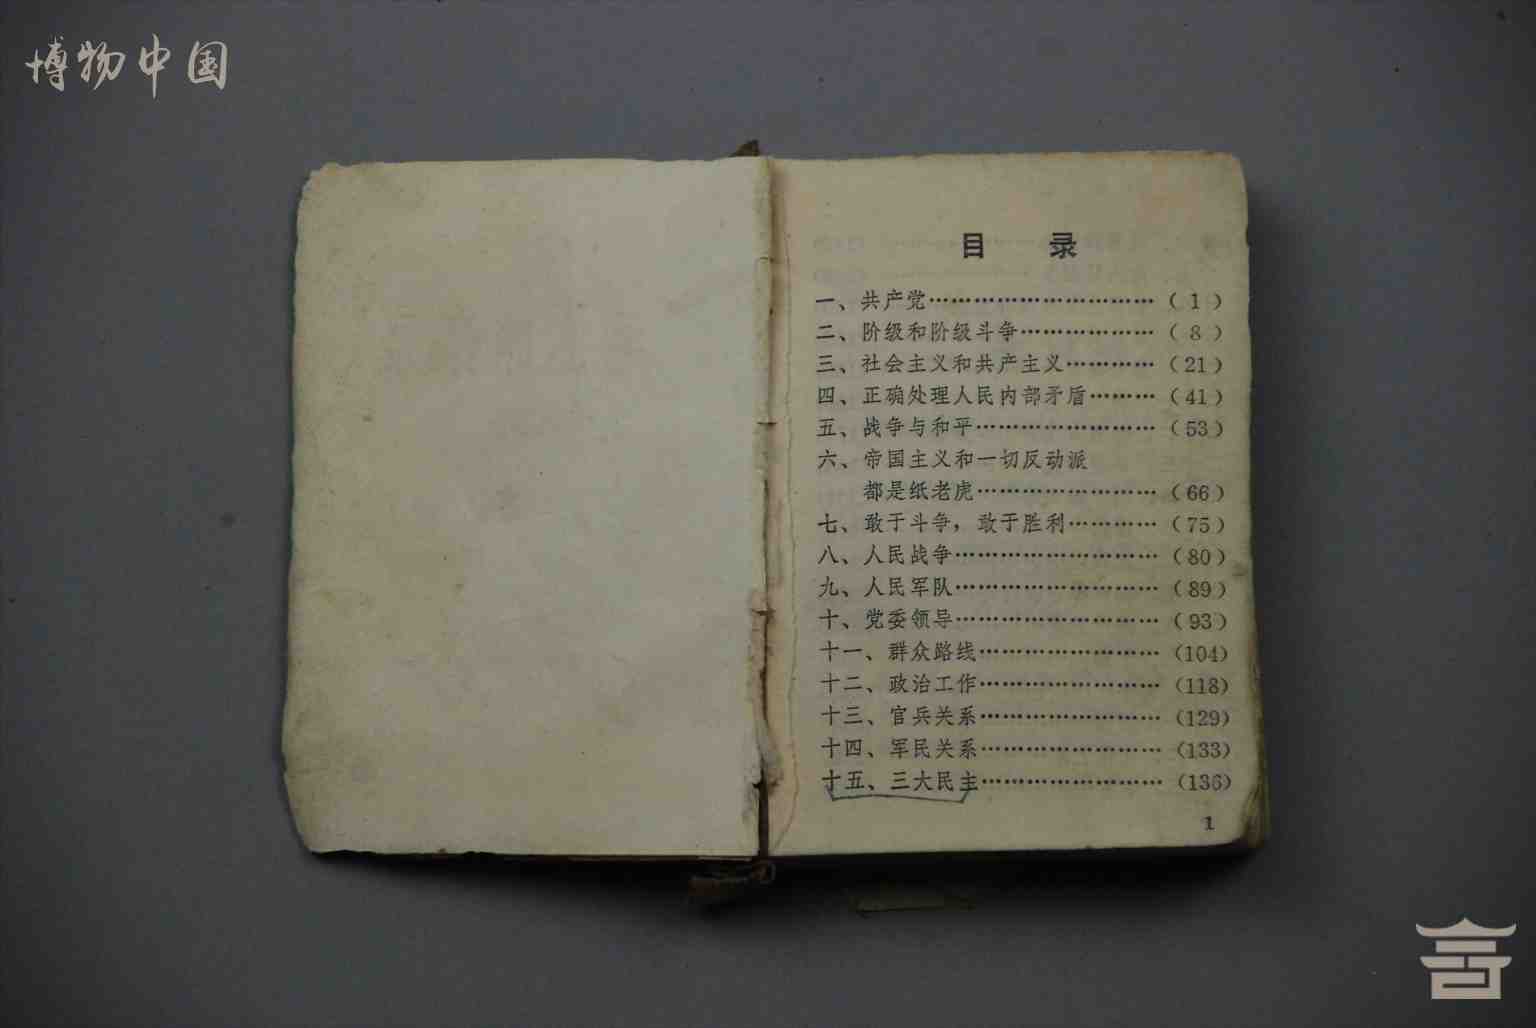 博物中国
目 录
一、共产党…………………………( 1 )
二、阶级和阶级斗争………………( 8 )
三、社会主义和共产主义…………(21)
四、正确处理人民内部矛盾………(41)
五、战争与和平……………………(53)
六、帝国主义和一切反动派
都是纸老虎……………………(66)
七、敢于斗争，敢于胜利…………(75)
八、人民战争………………………(80)
九、人民军队………………………(89)
十、党委领导………………………(93)
十一、群众路线……………………(104)
十二、政治工作……………………(118)
十三、官兵关系……………………(129)
十四、军民关系……………………(133)
十五、三大民主……………………(136)
1